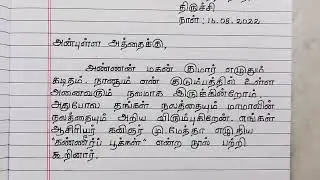 திருச்சி
நாள் : 16.08.2022
அன்புள்ள அத்தைக்கு,
அண்ணன் மகன் குமார் எழுதும்
கடிதம். நானும் என் குடும்பத்தில் உள்ள
அனைவரும் நலமாக இருக்கின்றோம்.
அதுபோல தங்கள் நலத்தையும் மாமாவின்
நலத்தையும் அறிய விடும்புகிறேன். எங்கள்
ஆசிரியர் கவிஞர் மு.மேத்தா எழுதிய
"கண்ணீர்ப் பூக்கள்" என்ற நூல் பற்றி
கூறினார்.